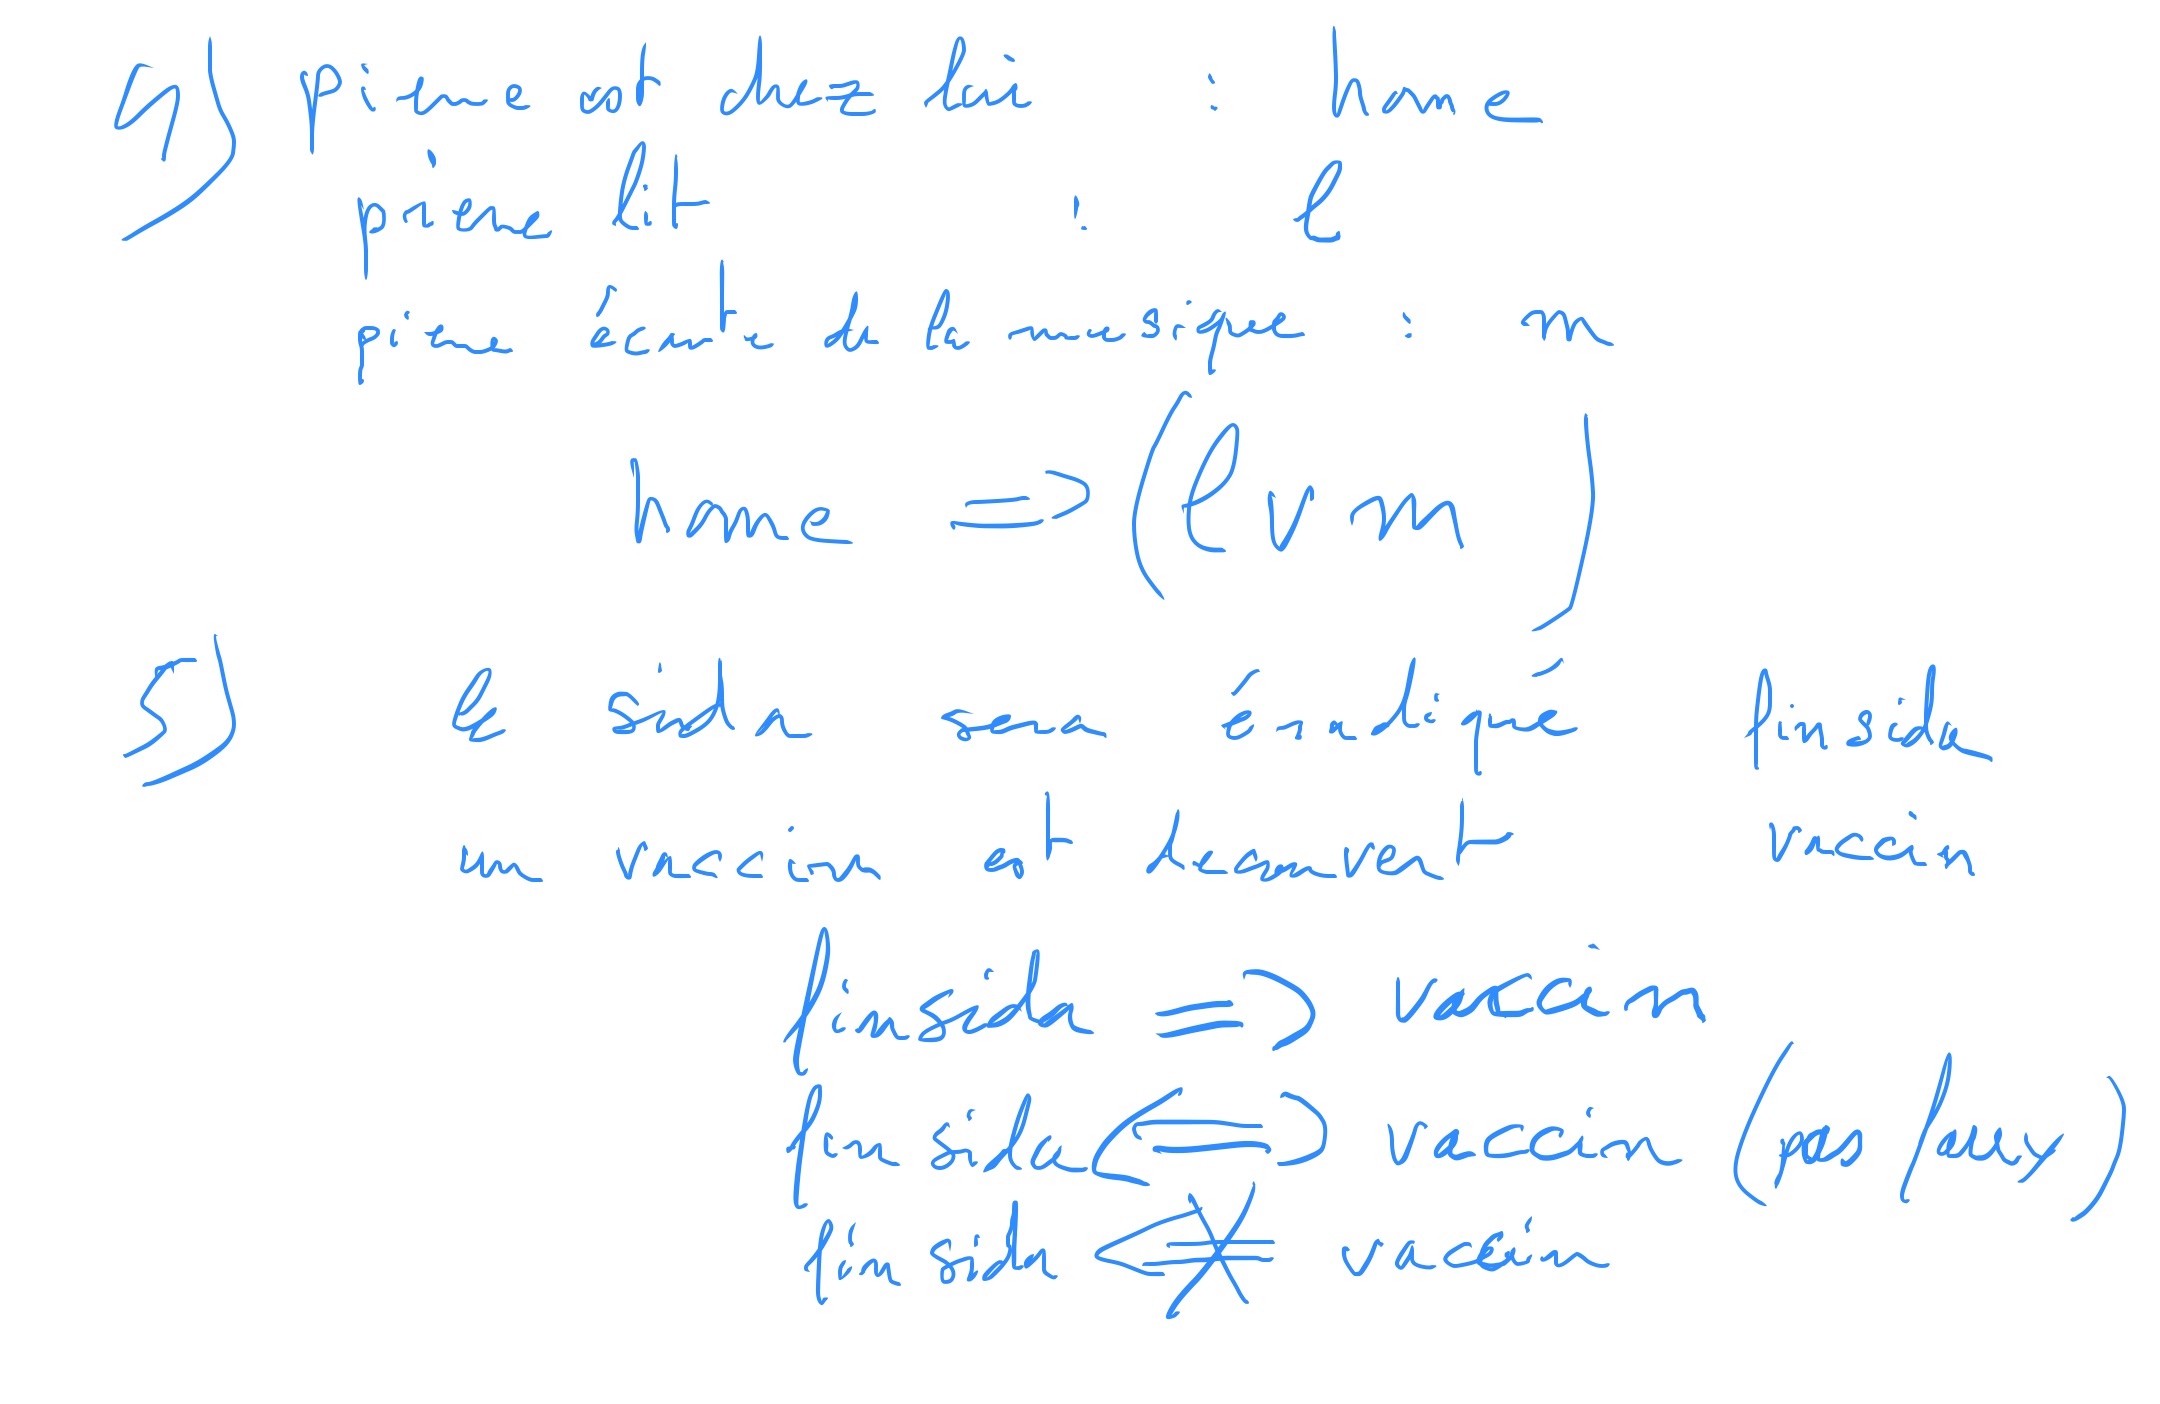 4) Pierre est chez lui : home
pierre lit : l
pierre écoute de la musique : m
home => (l v m)
5) le sida sera éradiqué finsida
un vaccin est decouvert vaccin
finsida => vaccin
fin sida <=> vaccin (pas faux)
fin sida <= vaccin